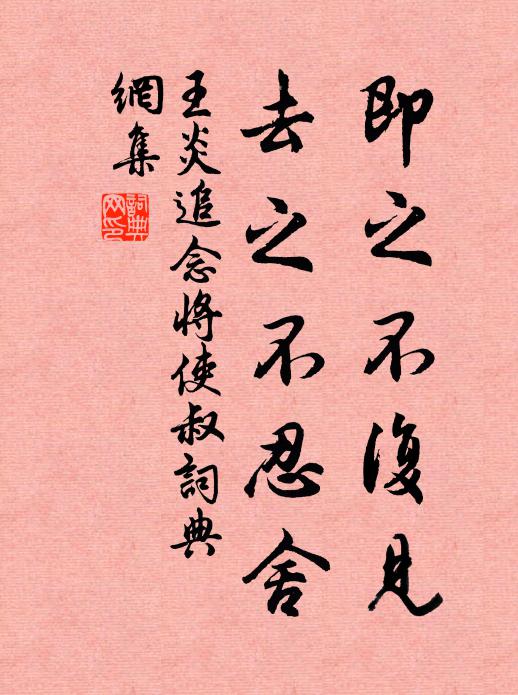 即之不復見
去之不忍舍
王炎追念將使叔詞典
網集
詞典網印